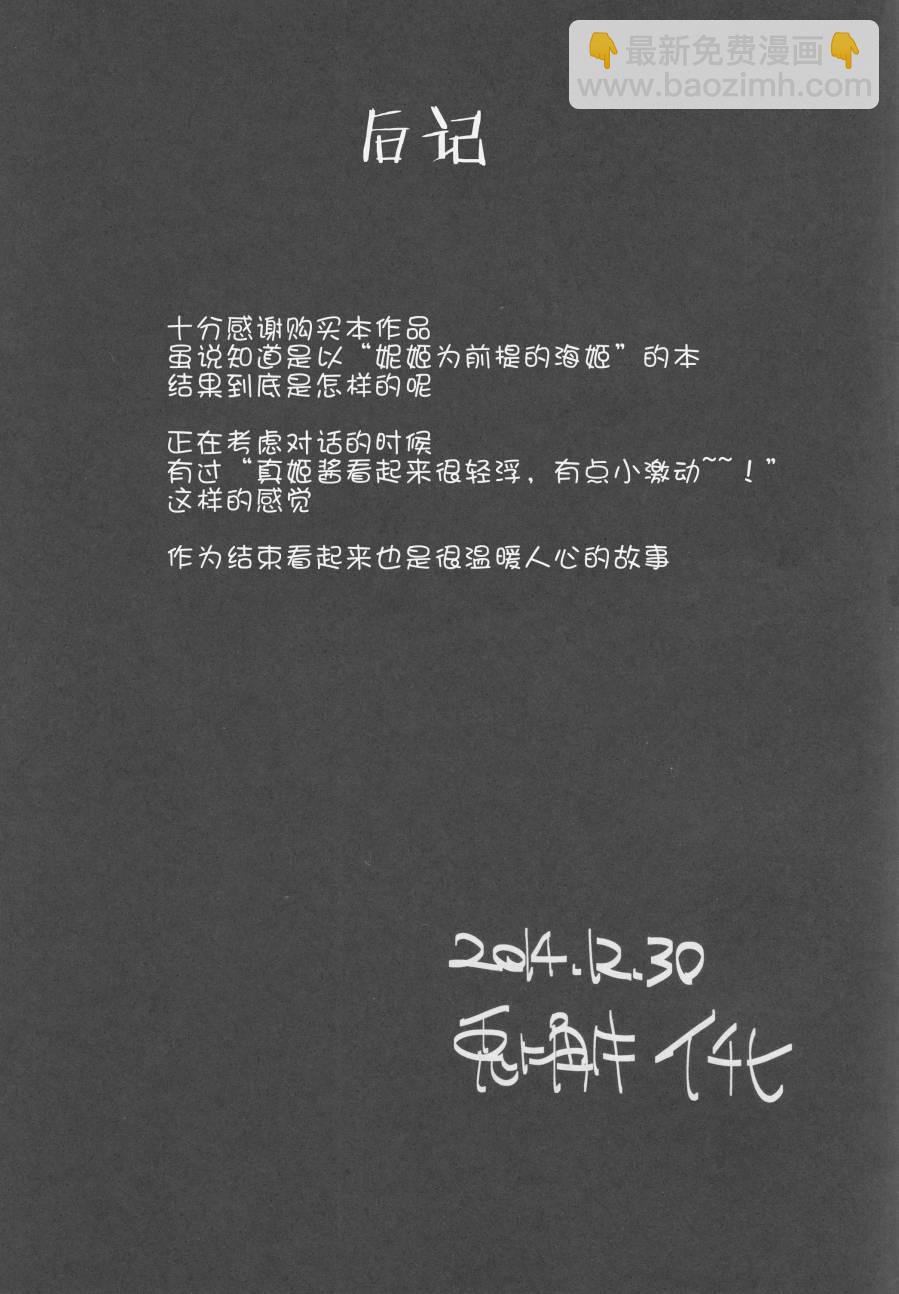 👇最新免费漫画👇
www.baozimh.com
后记
十分感谢购买本作品
虽说知道是以“妮姬为前提的海姬”的本
结果到底是怎样的呢
正在考虑对话的时候
有过“真姬酱看起来很轻浮，有点小激动~~！”
这样的感觉
作为结束看起来也是很温暖人心的故事
2014.12.30